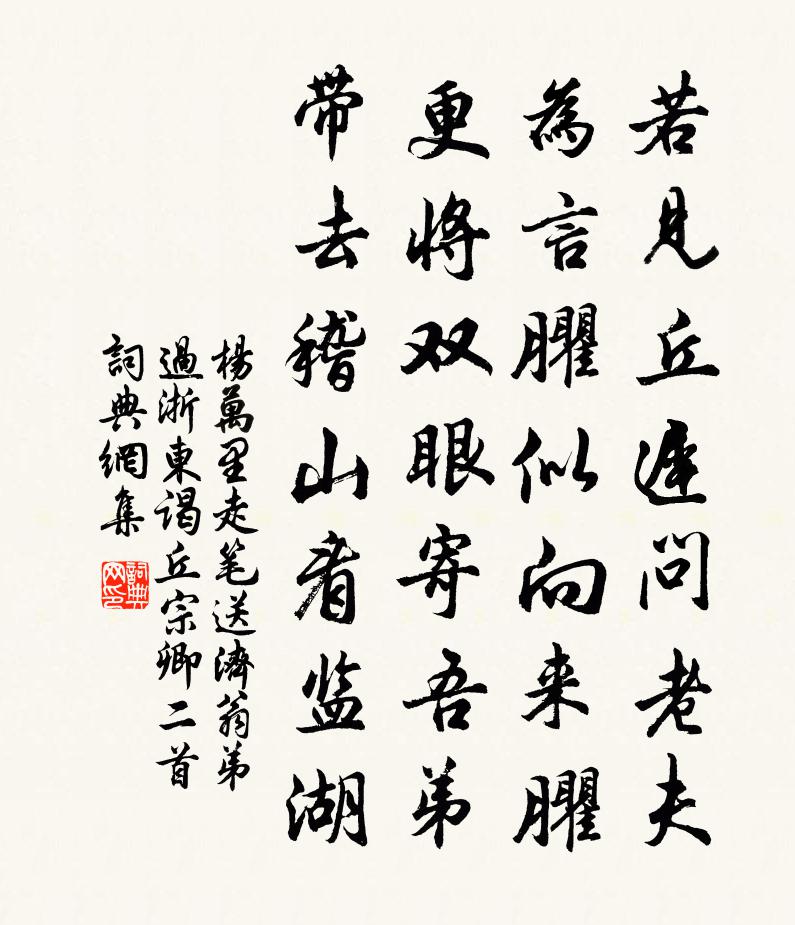 若見丘遲問老夫
為言臞似向来臞
更将双眼寄吾弟
带去稽山看监湖
楊萬里走笔送濟翁弟
過浙東谒丘宗卿二首
詞典網集
詞典网印